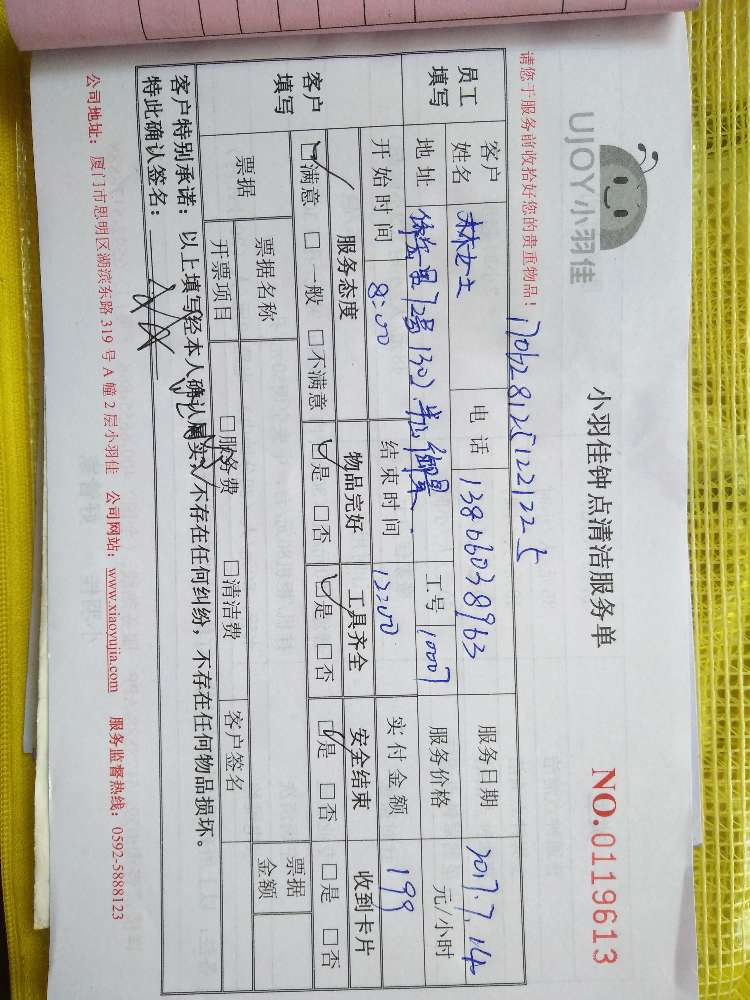 UJOY小羽佳
小羽佳钟点清洁服务单
NO.0119613
请您于服务前收拾好您的贵重物品！
170628125122122５
员工填写
客户姓名 林女士 电话 13806038963 服务日期 2017.7.14
地址 72号1302 御景 工号 10007 服务价格 元/小时
开始时间 8:00 结束时间 12:00 实付金额 199
客户填写
服务态度 物品完好 工具齐全 安全结束 收到卡片
☑满意 □一般 □不满意 ☑是 □否 ☑是 □否 ☑是 □否 □是 □否
票据 票据名称 票据金额
开票项目 □服务费 □清洁费 客户签名
客户特别承诺：以上填写经本人确认属实，不存在任何纠纷，不存在任何物品损坏。
特此确认签名：
公司地址：厦门市思明区湖滨东路319号A幢2层小羽佳 公司网站：www.xiaoyujia.com 服务监督热线：0592-5888123